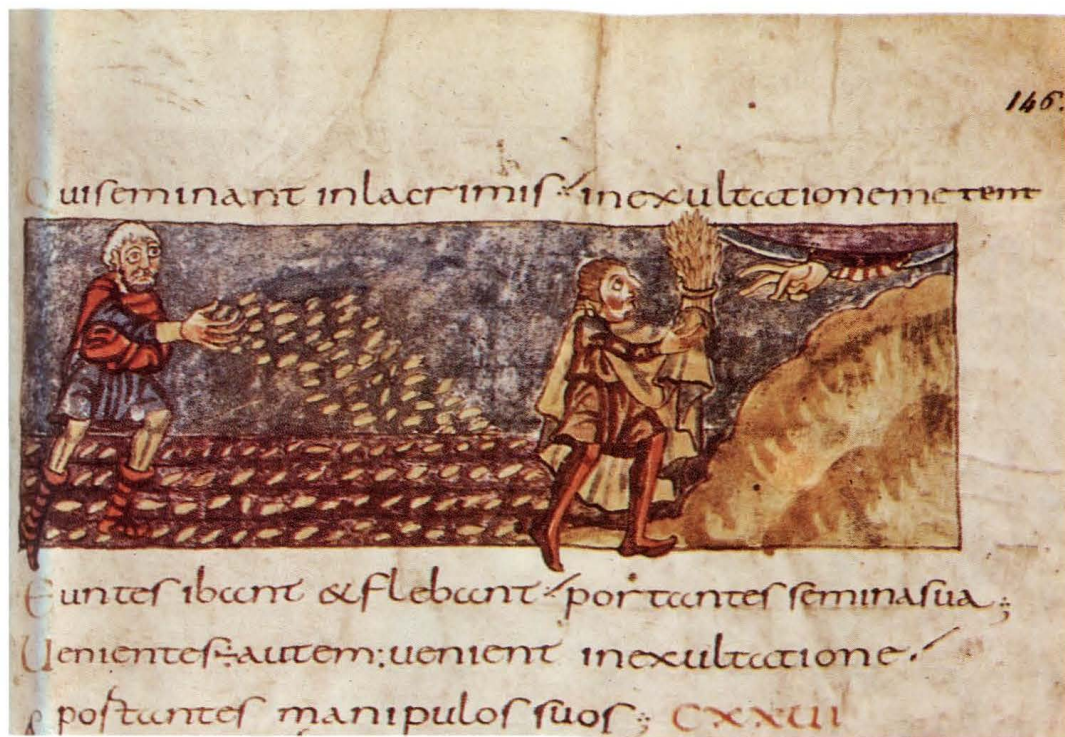 146.
Qui seminant inlacrimis inexultationemetent
Euntes ibant & flebant portantes seminasua;
Uenientes autem: uenient inexultatione
& postantes manipulos suos; CXXVI